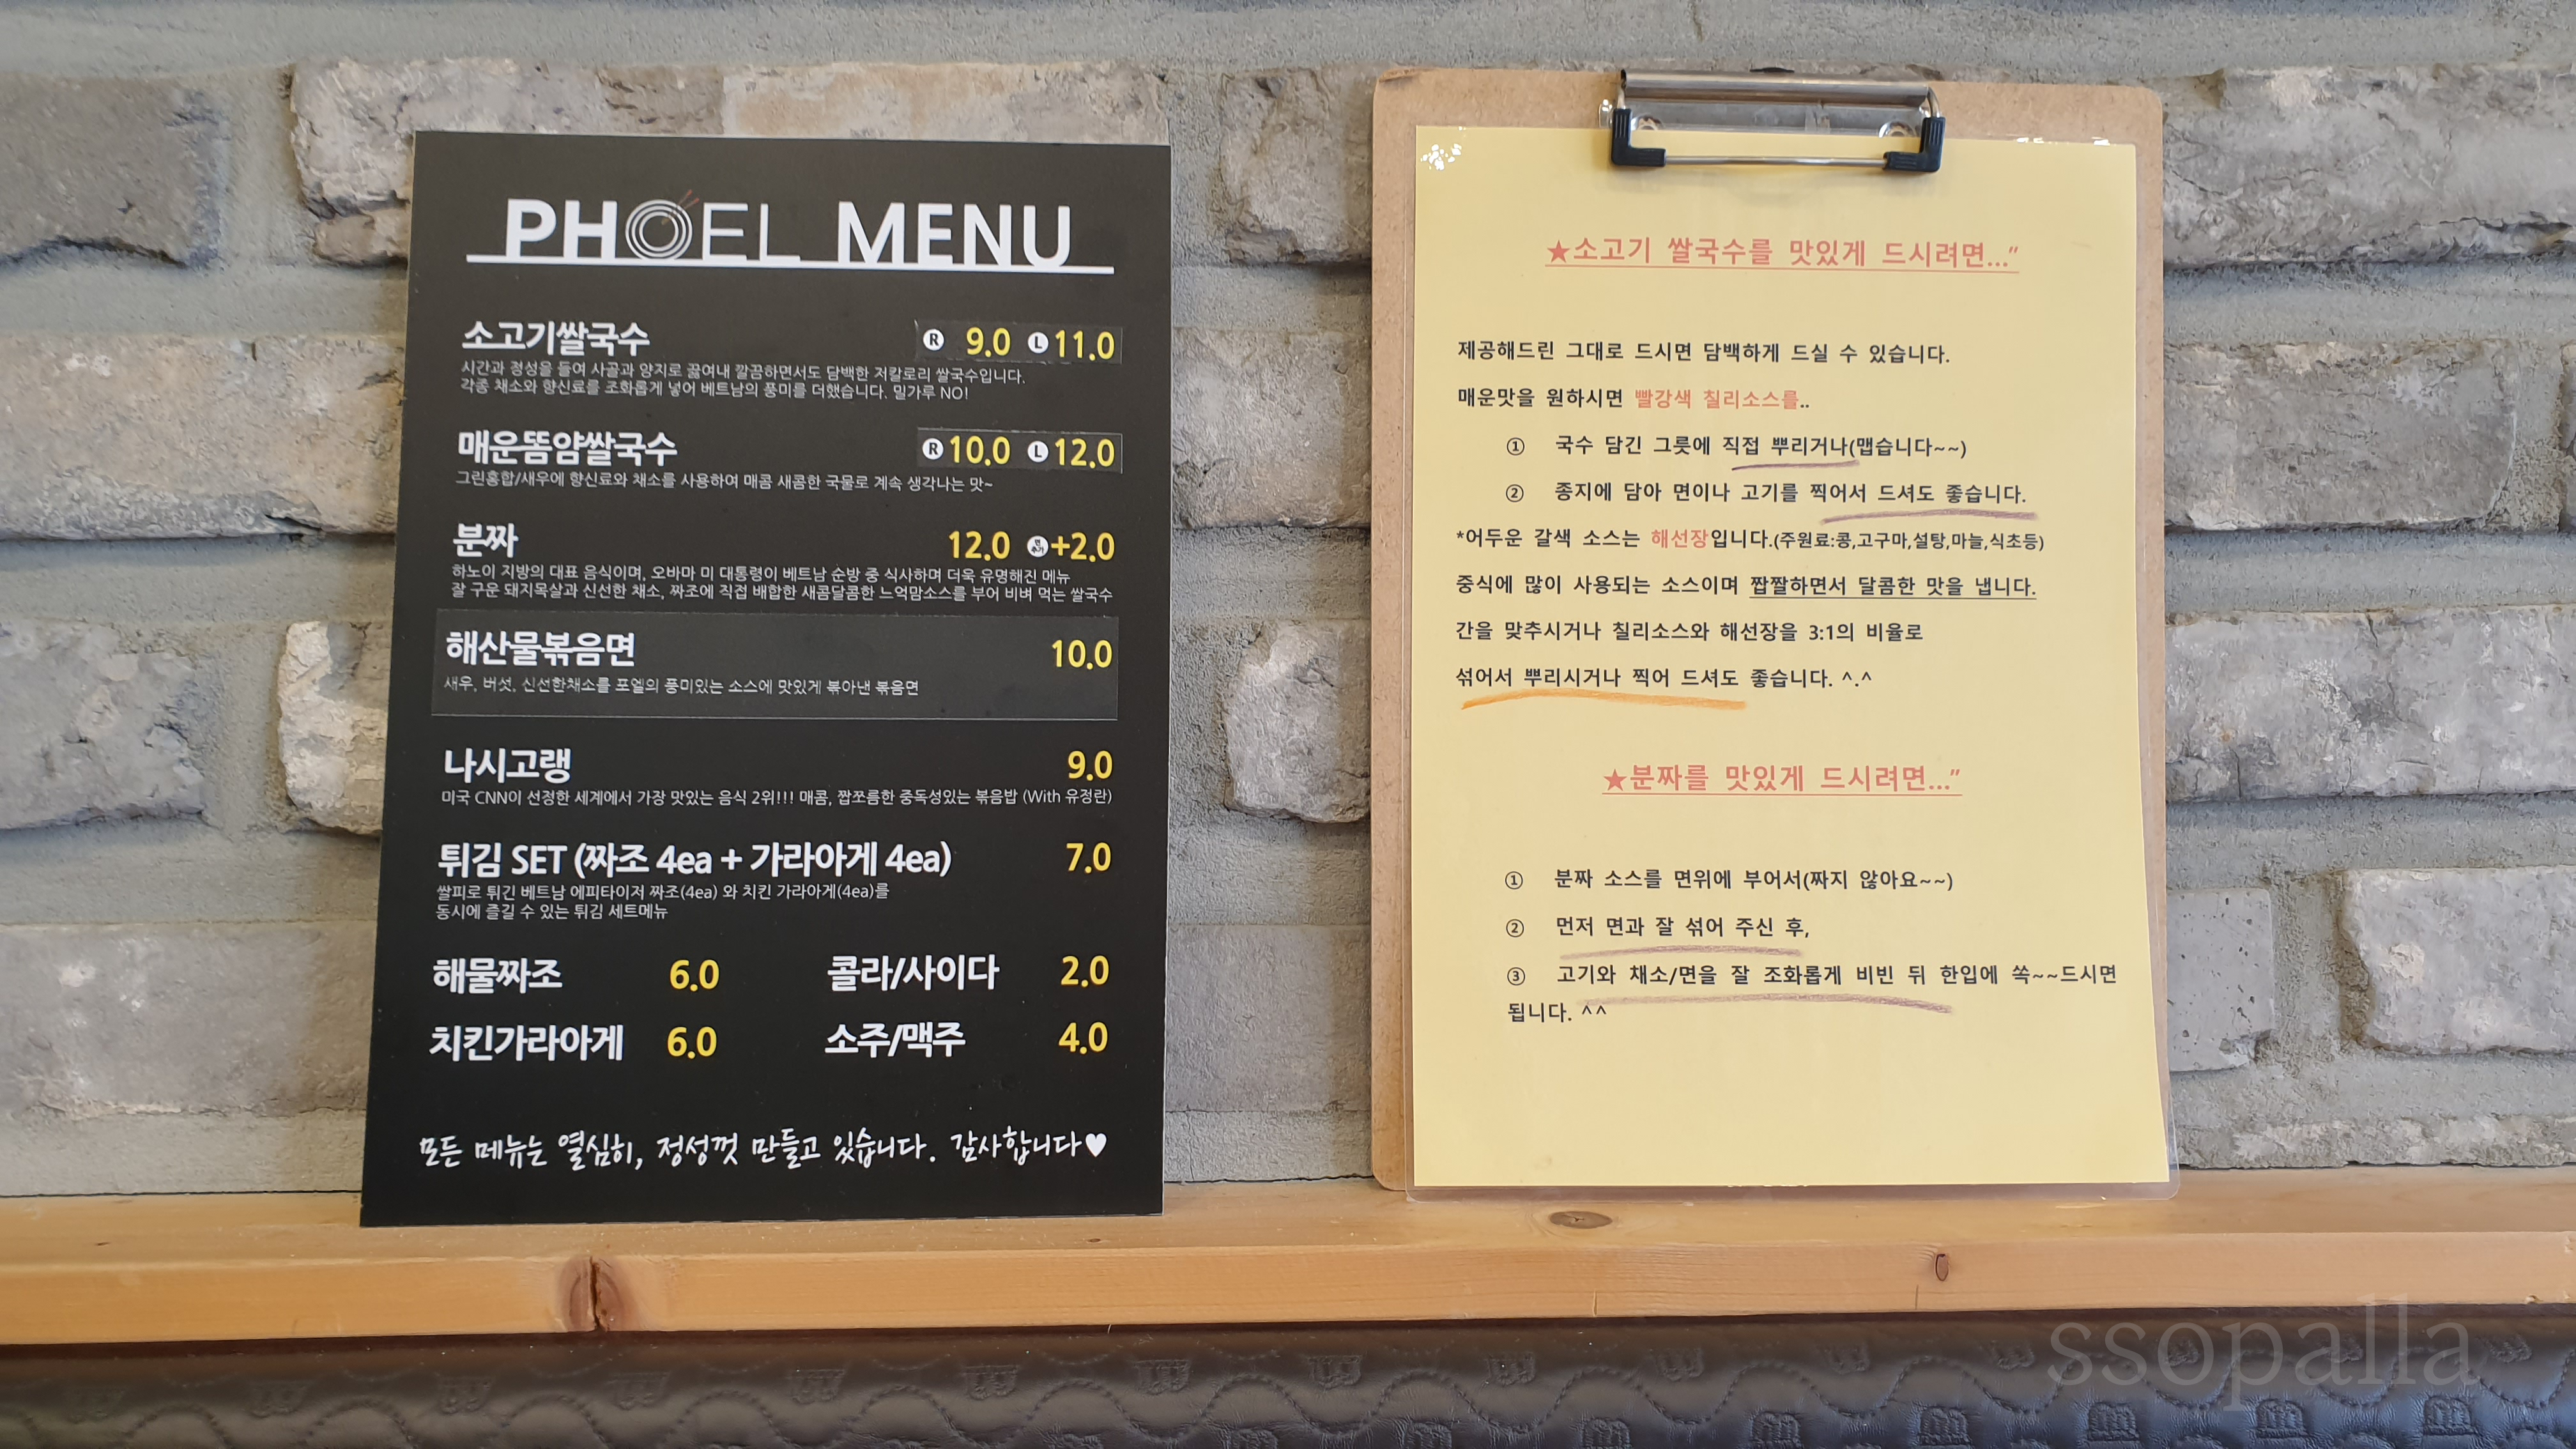 PHOEL MENU
소고기쌀국수 R 9.0 L 11.0
시간과 정성을 들여 사골과 양지로 끓여내 깔끔하면서도 담백한 저칼로리 쌀국수입니다.
각종 채소와 향신료를 조화롭게 넣어 베트남의 풍미를 더했습니다. 밀가루 NO!
매운똠얌쌀국수 R 10.0 L 12.0
그린홍합/새우에 향신료와 채소를 사용하여 매콤 새콤한 국물로 계속 생각나는 맛~
분짜 12.0 면추가 +2.0
하노이 지방의 대표 음식이며, 오바마 미 대통령이 베트남 순방 중 식사하며 더욱 유명해진 메뉴
잘 구운 돼지목살과 신선한 채소, 짜조에 직접 배합한 새콤달콤한 느억맘소스를 부어 비벼 먹는 쌀국수
해산물볶음면 10.0
새우, 버섯, 신선한채소를 포엘의 풍미있는 소스에 맛있게 볶아낸 볶음면
나시고랭 9.0
미국 CNN이 선정한 세계에서 가장 맛있는 음식 2위!!! 매콤, 짭쪼름한 중독성있는 볶음밥 (With 유정란)
튀김 SET (짜조 4ea + 가라아게 4ea) 7.0
쌀피로 튀긴 베트남 에피타이저 짜조(4ea) 와 치킨 가라아게(4ea)를
동시에 즐길 수 있는 튀김 세트메뉴
해물짜조 6.0 콜라/사이다 2.0
치킨가라아게 6.0 소주/맥주 4.0
모든 메뉴는 열심히, 정성껏 만들고 있습니다. 감사합니다♥
★소고기 쌀국수를 맛있게 드시려면..."
제공해드린 그대로 드시면 담백하게 드실 수 있습니다.
매운맛을 원하시면 빨강색 칠리소스를..
① 국수 담긴 그릇에 직접 뿌리거나(맵습니다~~)
② 종지에 담아 면이나 고기를 찍어서 드셔도 좋습니다.
*어두운 갈색 소스는 해선장입니다.(주원료:콩,고구마,설탕,마늘,식초등)
중식에 많이 사용되는 소스이며 짭짤하면서 달콤한 맛을 냅니다.
간을 맞추시거나 칠리소스와 해선장을 3:1의 비율로
섞어서 뿌리시거나 찍어 드셔도 좋습니다. ^.^
★분짜를 맛있게 드시려면..."
① 분짜 소스를 면위에 부어서(짜지 않아요~~)
② 먼저 면과 잘 섞어 주신 후,
③ 고기와 채소/면을 잘 조화롭게 비빈 뒤 한입에 쏙~~드시면
됩니다. ^^
ssopalla